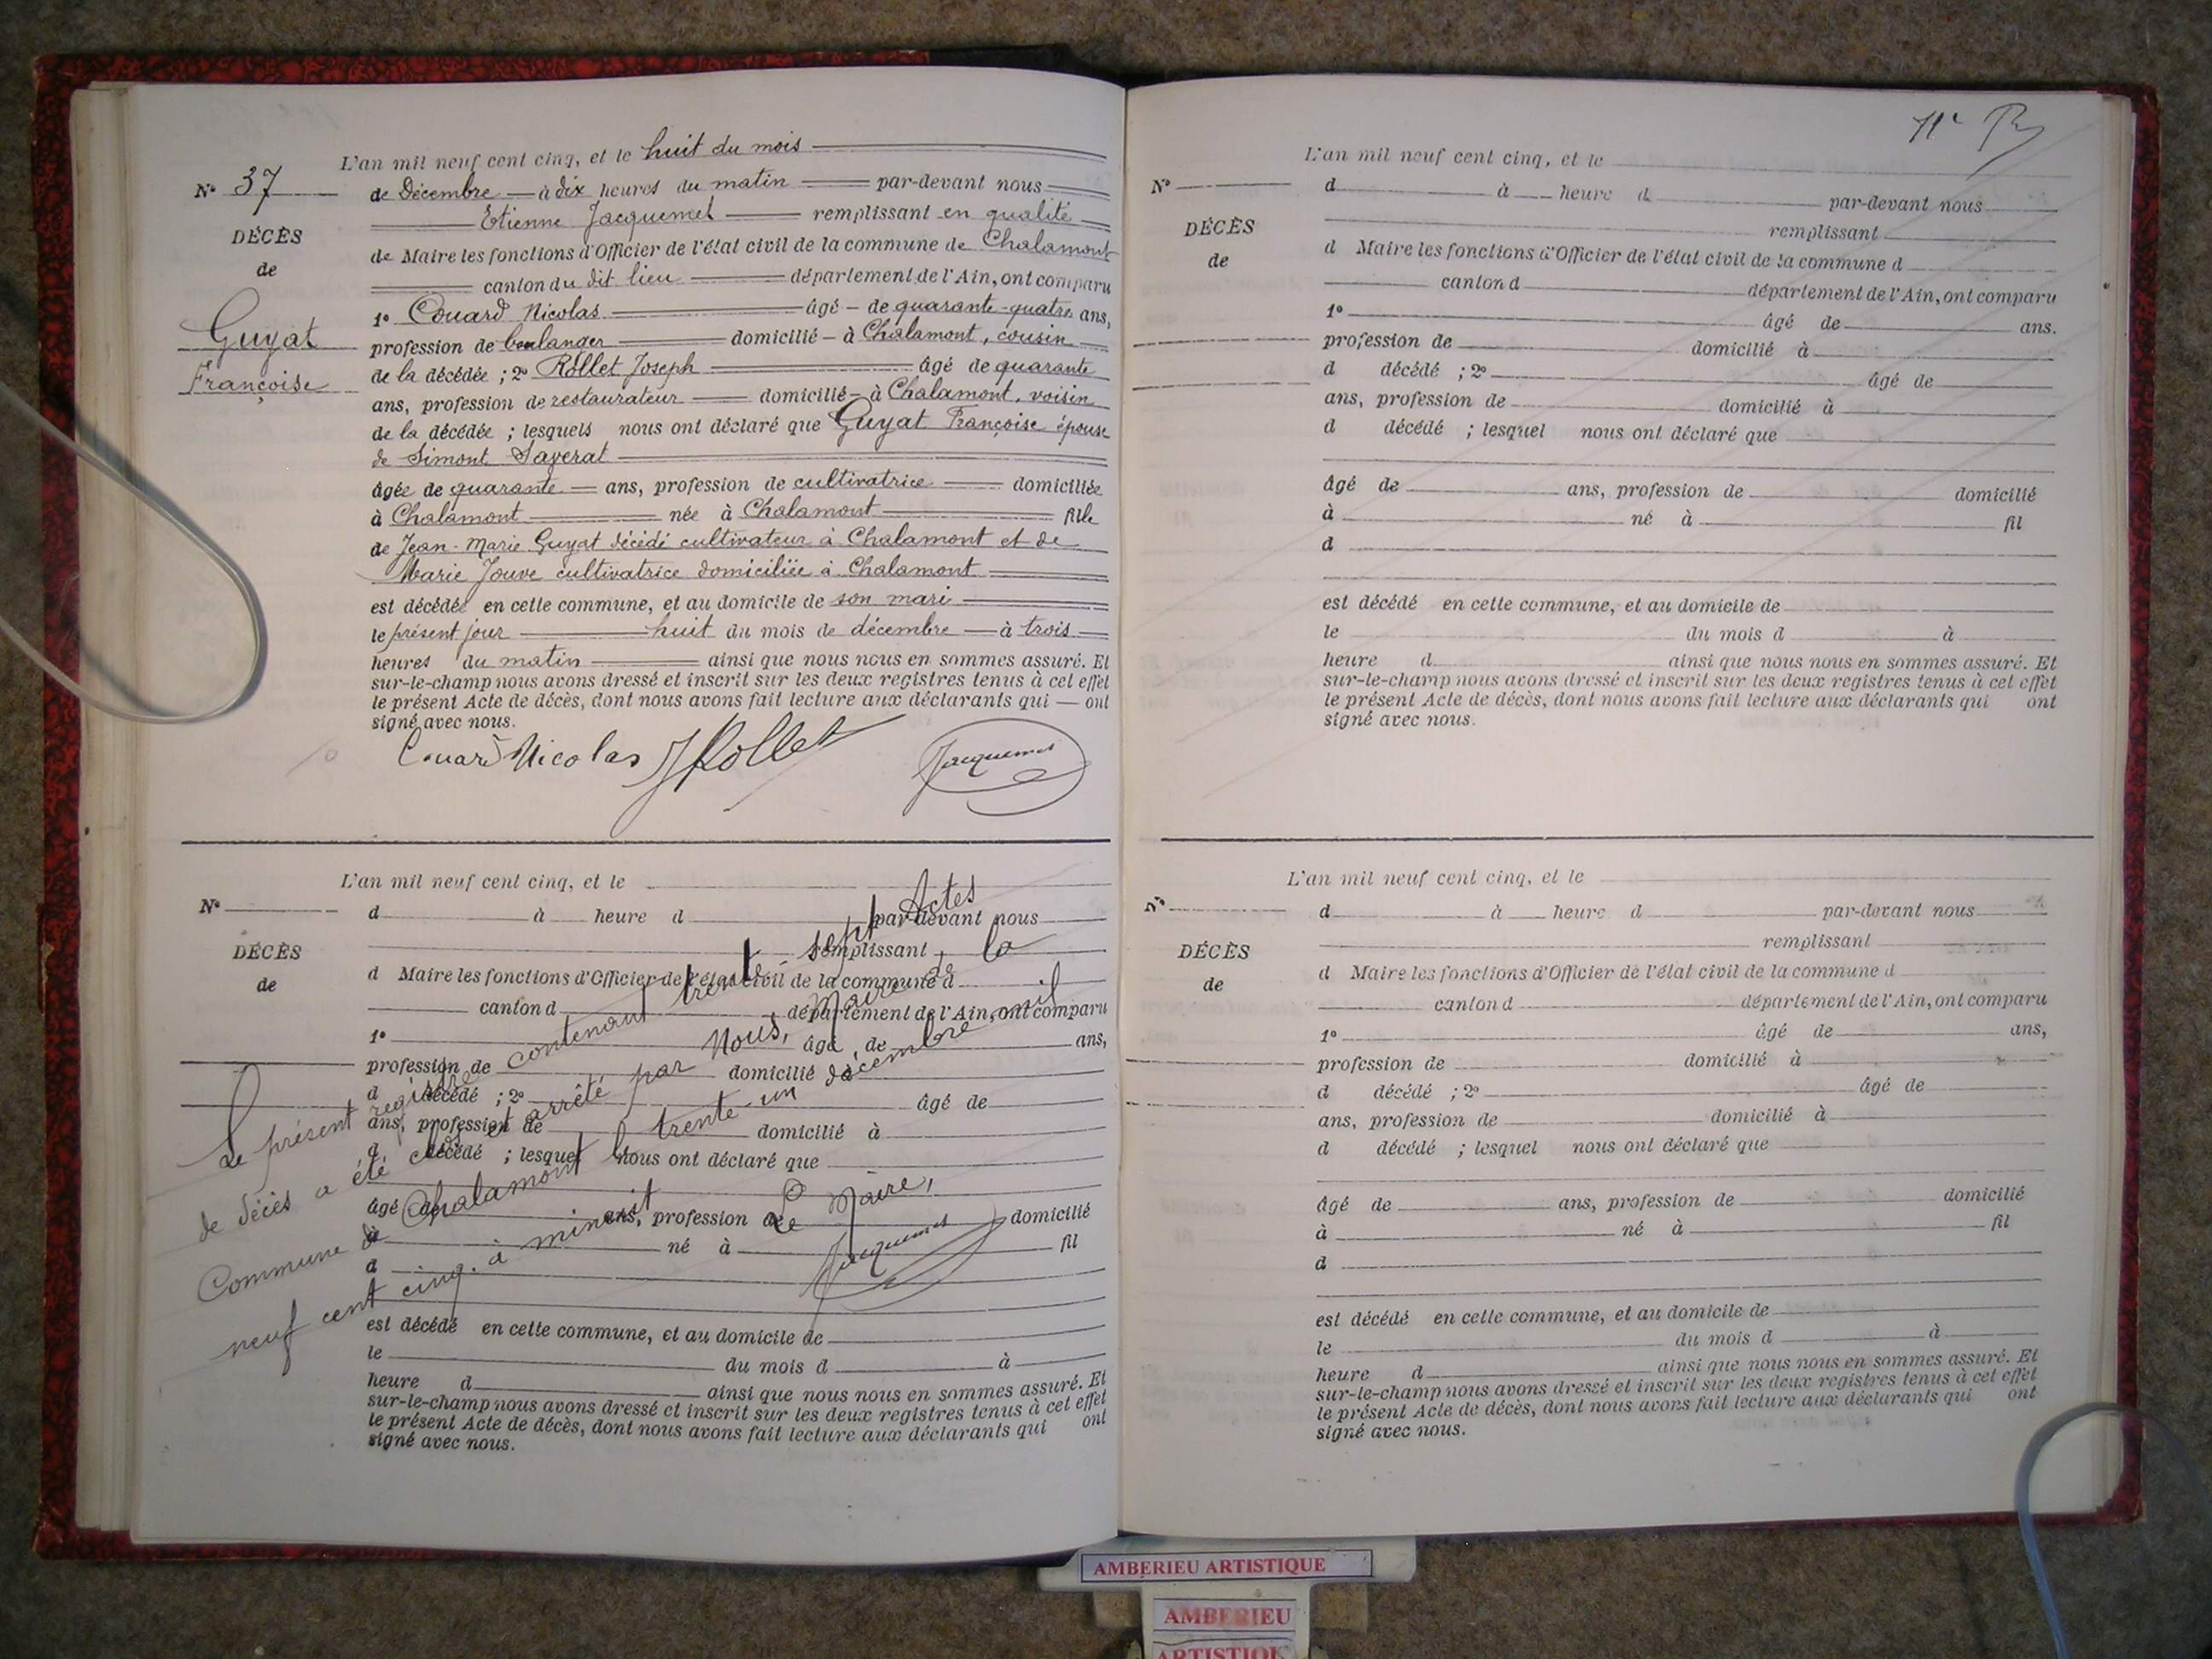 L'an mil neuf cent cinq, et le huit du mois
N° 37
de Décembre à dix heures du matin par-devant nous
Etienne Jacquemet remplissant en qualité
DÉCÈS
de Maire les fonctions d'Officier de l'état civil de la commune de Chalamont
de
canton du dit lieu département de l'Ain, ont comparu
1° Couard Nicolas âgé de quarante-quatre ans,
Guyat
profession de boulanger domicilié à Chalamont, cousin
Françoise
de la décédée ; 2° Rollet Joseph âgé de quarante
ans, profession de restaurateur domicilié à Chalamont, voisin
de la décédée ; lesquels nous ont déclaré que Guyat Françoise épouse
de Simont Saverat
âgée de quarante ans, profession de cultivatrice domiciliée
à Chalamont née à Chalamont fille
de Jean-Marie Guyat décédé cultivateur à Chalamont et de
Marie Jouve cultivatrice domiciliée à Chalamont
est décédée en cette commune, et au domicile de son mari
le présent jour huit du mois de décembre à trois
heures du matin ainsi que nous nous en sommes assuré. Et
sur-le-champ nous avons dressé et inscrit sur les deux registres tenus à cet effet
le présent Acte de décès, dont nous avons fait lecture aux déclarants qui ont
signé avec nous.
Couard Nicolas JRollet Jacquemet
L'an mil neuf cent cinq, et le
N°
d à heure d par-devant nous
remplissant
DÉCÈS
d Maire les fonctions d'Officier de l'état civil de la commune d
de
canton d département de l'Ain, ont comparu
1° âgé de ans,
profession de domicilié à
d décédé ; 2° âgé de
ans, profession de domicilié à
d décédé ; lesquel nous ont déclaré que
âgé de ans, profession de domicilié
à né à fil
d
est décédé en cette commune, et au domicile de
le du mois d à
heure d ainsi que nous nous en sommes assuré. Et
sur-le-champ nous avons dressé et inscrit sur les deux registres tenus à cet effet
le présent Acte de décès, dont nous avons fait lecture aux déclarants qui ont
signé avec nous.
Le présent registre contenant trente-sept Actes
de décès a été clos et arrêté par Nous, Maire de la
Commune de Chalamont le trente-un décembre mil
neuf cent cinq. à minuit
Le Maire,
Jacquemet
L'an mil neuf cent cinq, et le
N°
d à heure d par-devant nous
remplissant
DÉCÈS
d Maire les fonctions d'Officier de l'état civil de la commune d
de
canton d département de l'Ain, ont comparu
1° âgé de ans.
profession de domicilié à
d décédé ; 2° âgé de
ans, profession de domicilié à
d décédé ; lesquel nous ont déclaré que
âgé de ans, profession de domicilié
à né à fil
d
est décédé en cette commune, et au domicile de
le du mois d à
heure d ainsi que nous nous en sommes assuré. Et
sur-le-champ nous avons dressé et inscrit sur les deux registres tenus à cet effet
le présent Acte de décès, dont nous avons fait lecture aux déclarants qui ont
signé avec nous.
L'an mil neuf cent cinq, et le
N°
d à heure d par-devant nous
remplissant
DÉCÈS
d Maire les fonctions d'Officier de l'état civil de la commune d
de
canton d département de l'Ain, ont comparu
1° âgé de ans,
profession de domicilié à
d décédé ; 2° âgé de
ans, profession de domicilié à
d décédé ; lesquel nous ont déclaré que
âgé de ans, profession de domicilié
à né à fil
d
est décédé en cette commune, et au domicile de
le du mois d à
heure d ainsi que nous nous en sommes assuré. Et
sur-le-champ nous avons dressé et inscrit sur les deux registres tenus à cet effet
le présent Acte de décès, dont nous avons fait lecture aux déclarants qui ont
signé avec nous.
AMBERIEU ARTISTIQUE
AMBERIEU